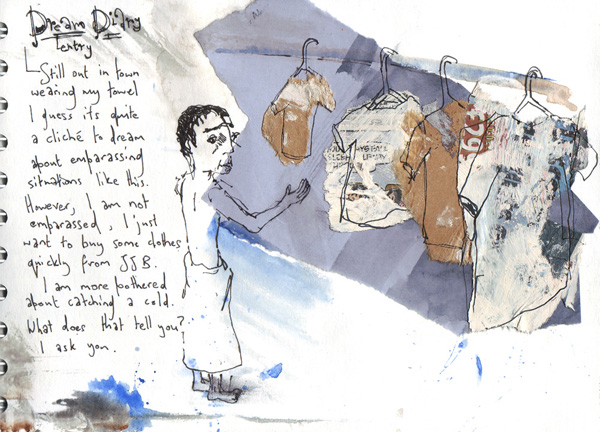 Dream Diary
Entry
Still out in town
wearing my towel
I guess its quite
a cliché to dream
about embarassing
situations like this.
However, I am not
embarassed, I just
want to buy some clothes
quickly from JJB.
I am more bothered
about catching a cold.
What does that tell you?
I ask you.
£29